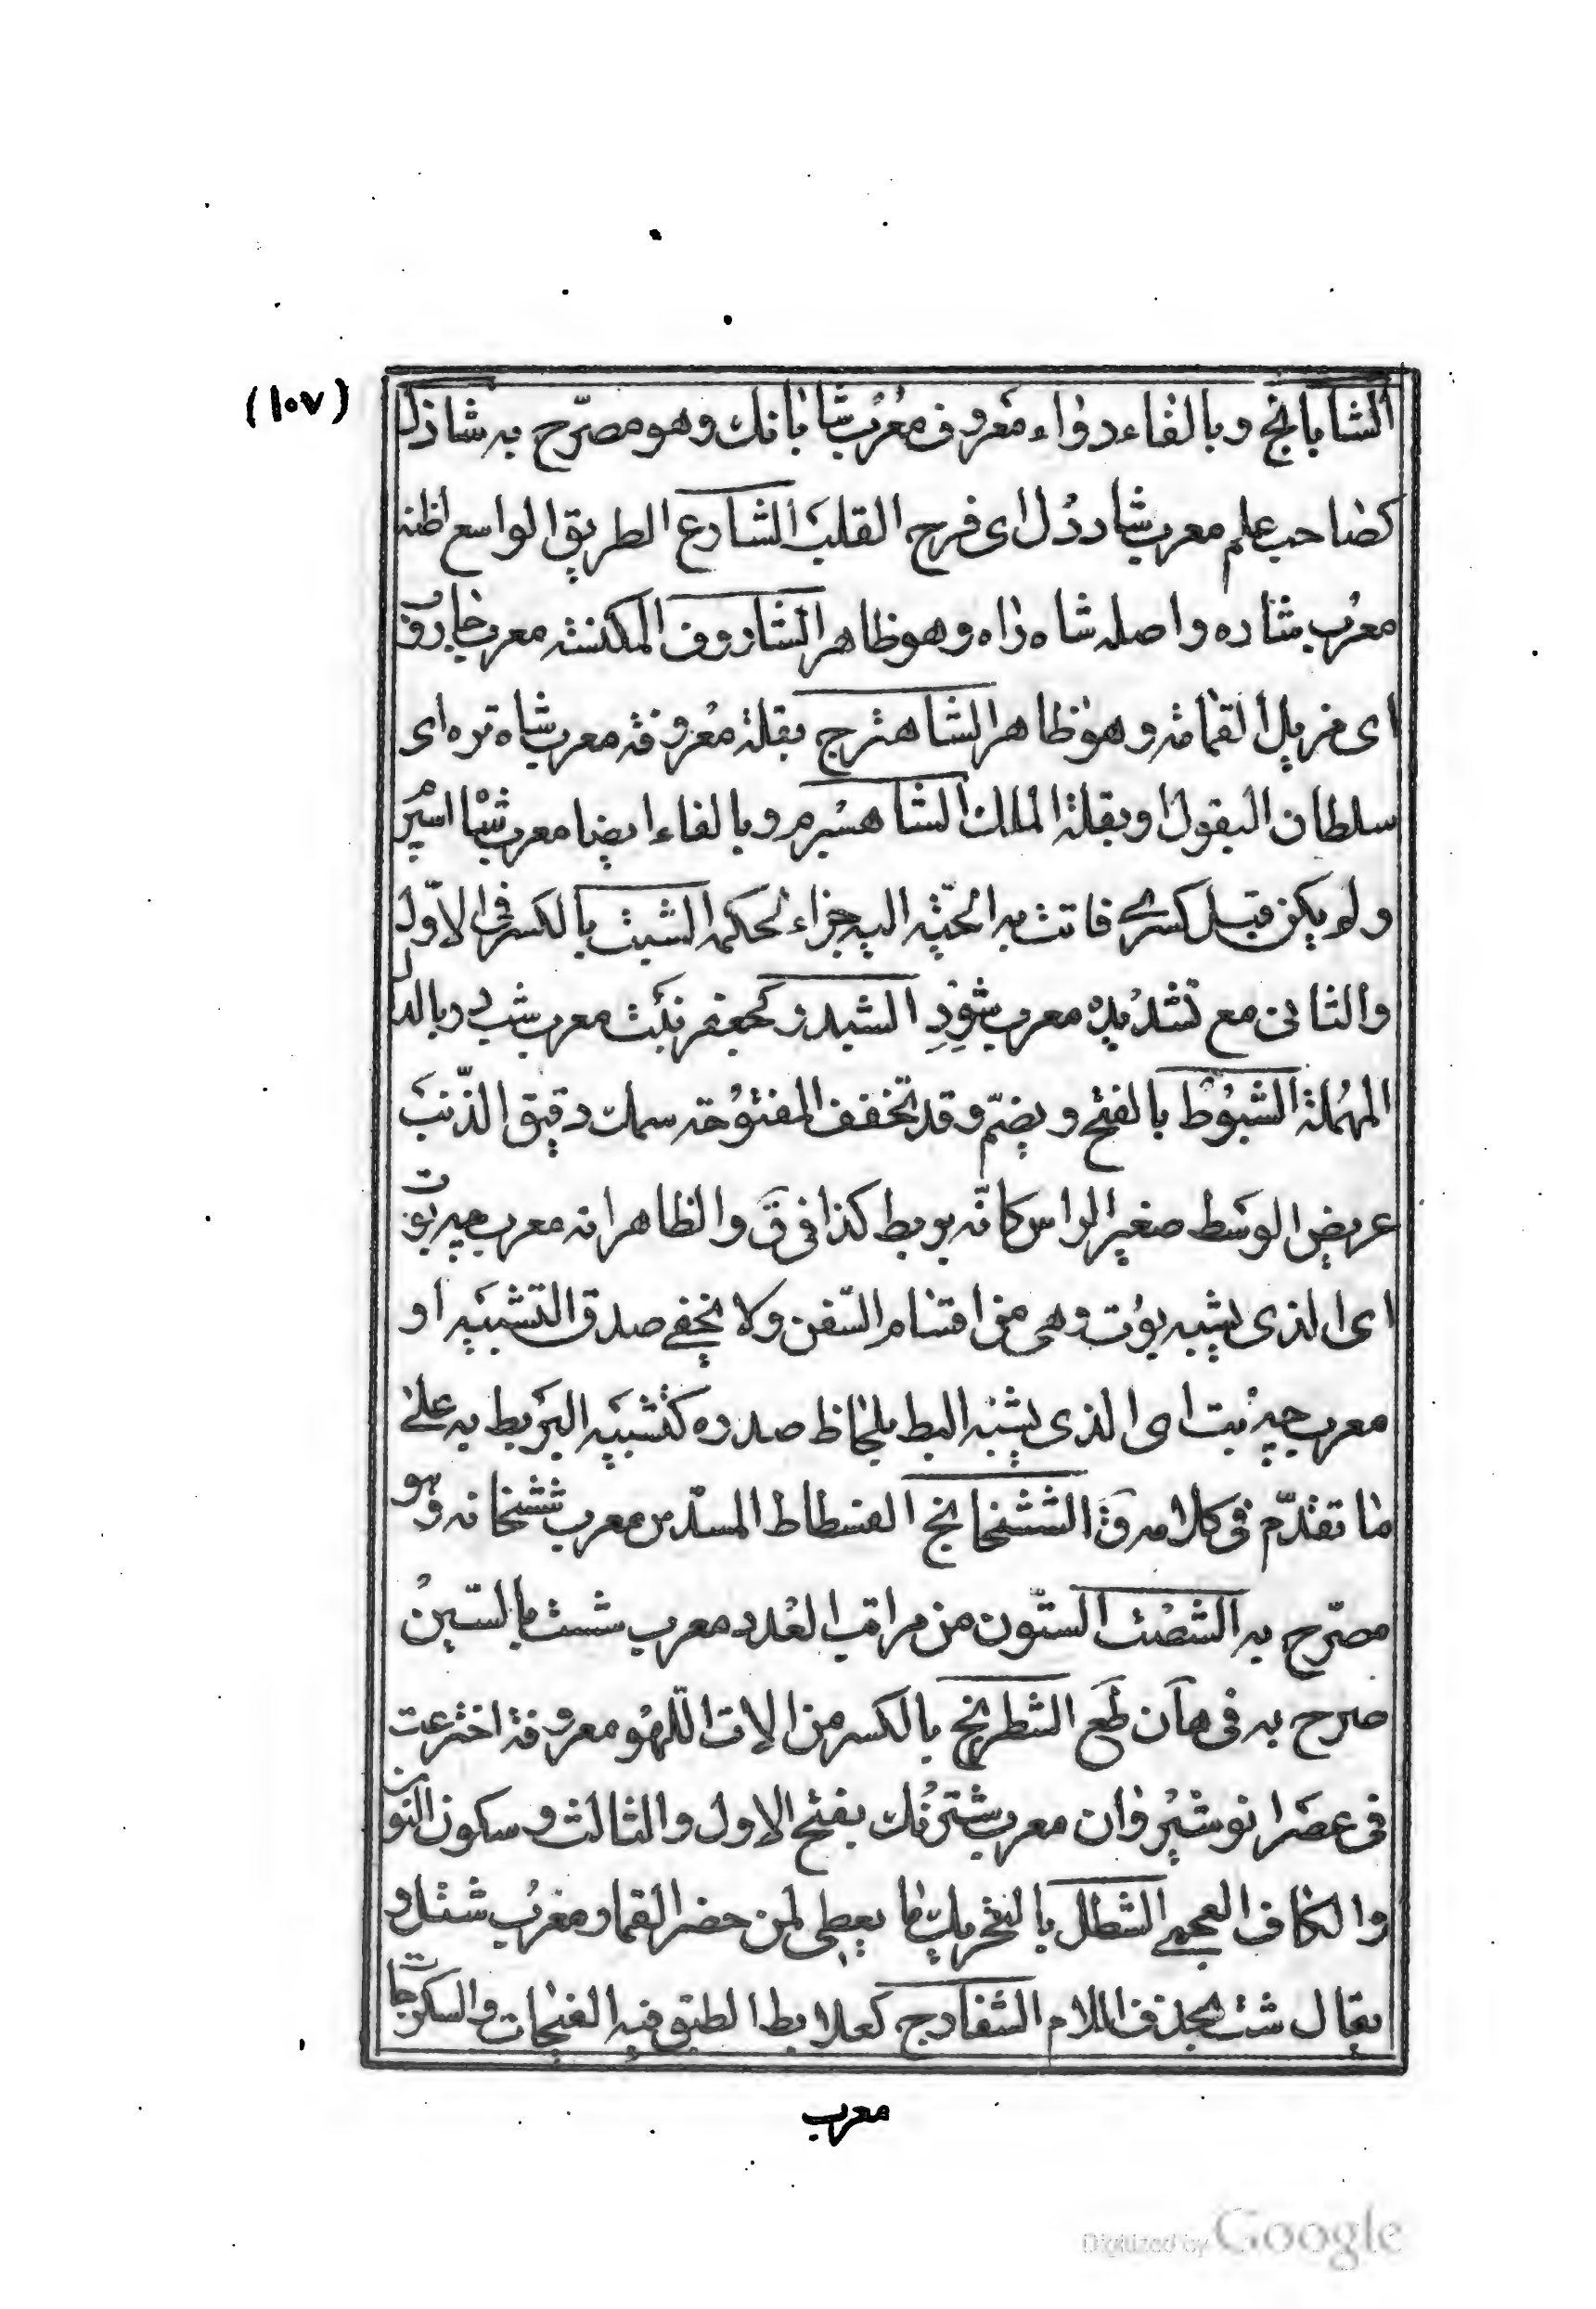 (١٠٧)
الشابانج وبالفاء دواء معروف معرب شابانك وهو مصرّح به شاذل
كصاحب علم معرب شاد دُل اى فرح القلب الشارع الطريق الواسع اظنه
معرب شاره واصله شاه راه وهو ظاهر الشاروف المكنسة معرب جاروب
اى مزيل القمامة وهو ظاهر الشاهترج بقلة معروفة معرب شاه تره اى
سلطان البقول او بقلة الملك الشاهسبرم وبالفاء ايضا معرب شاه اسپرم
ولو يكن قبل كسرى فاتت به الحيّة اليه جزاء لحكمه الشبث بالكسر فى الاوّل
والثانى مع تشديده معرب شِوِدِ الشبدر كجعفر نبت معرب شبدر بالدال
المهملة الشبوط بالفتح ويضم وقد تخفف المفتوحة سمك دقيق الذنب
عريض الوسط صغير الراس كانّه بربط كذا فى ق والظاهر انه معرب چه بوت
اى الذى يشبه بوت وهى من اقسام السّفن ولا يخفى صدق التشبيه او
معرب چه بت اى الذى يشبه البط بلحاظ صدره كتشبيه البربط به على
ما تقدّم فى كلامه ق الششخانج الفسطاط المسدس معرب ششخانه وهو
مصرّح به الشصت الستّون من مراتب العدد معرب شست بالسّين
صرح به فى هآن طَع الشطرنج بالكسر من الات اللّهو معروفة اخترعت
فى عصر انوشيروان معرب شترنك بفتح الاول والثالث وسكون النون
والكاف العجمى الشطل بالتحريك ما يعطى لمن حضر القمار معرب شتل و
يقال شت بحذف اللام الشفارج كعلابط الطبق فيه الفيخات والسكرجات
معرب
Digitized by Google